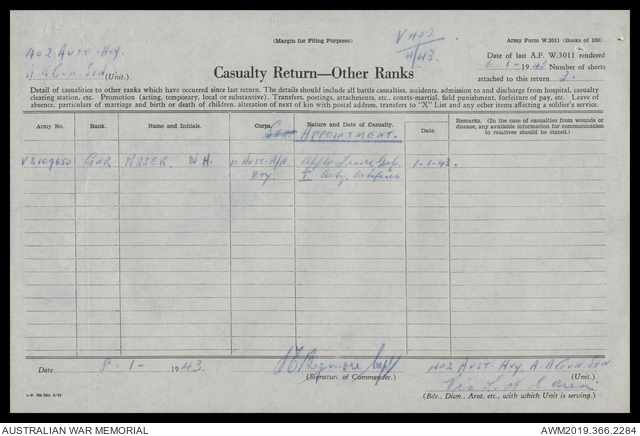 (Margin for Filing Purposes)
V 402
4/43.
Army Form W.3011 (Books of 100)
402 AUST. Hvy.
(Unit.)
Date of last A.F. W.3011 rendered
6-1-1943 Number of sheets
attached to this return 2.
Casualty Return—Other Ranks
Detail of casualties to other ranks which have occurred since last return. The details should include all battle casualties, accidents, admission to and discharge from hospital, casualty
clearing station, etc. Promotion (acting, temporary, local or substantive). Transfers, postings, attachments, etc., courts-martial, field punishment, forfeiture of pay, etc. Leave of
absence, particulars of marriage and birth or death of children, alteration of next of kin with postal address, transfers to "X" List and any other items affecting a soldier's service.
Army No.
Rank.
Name and Initials.
Corps.
Nature and Date of Casualty.
APPOINTMENT.
Date.
Remarks. (In the case of casualties from wounds or
disease, any available information for communication
to relatives should be stated.)
GNR WATER. W H. AUST. A/A 1-1-43.
Bty.
Date 8-1-1943.
(Signature of Commander.)
402 AUST. Hvy. A.A GUN. STN
(Unit.)
Via L. of C area.
(Bde., Divn., Area, etc., with which Unit is serving.)
AUSTRALIAN WAR MEMORIAL
AWM2019.366.2284